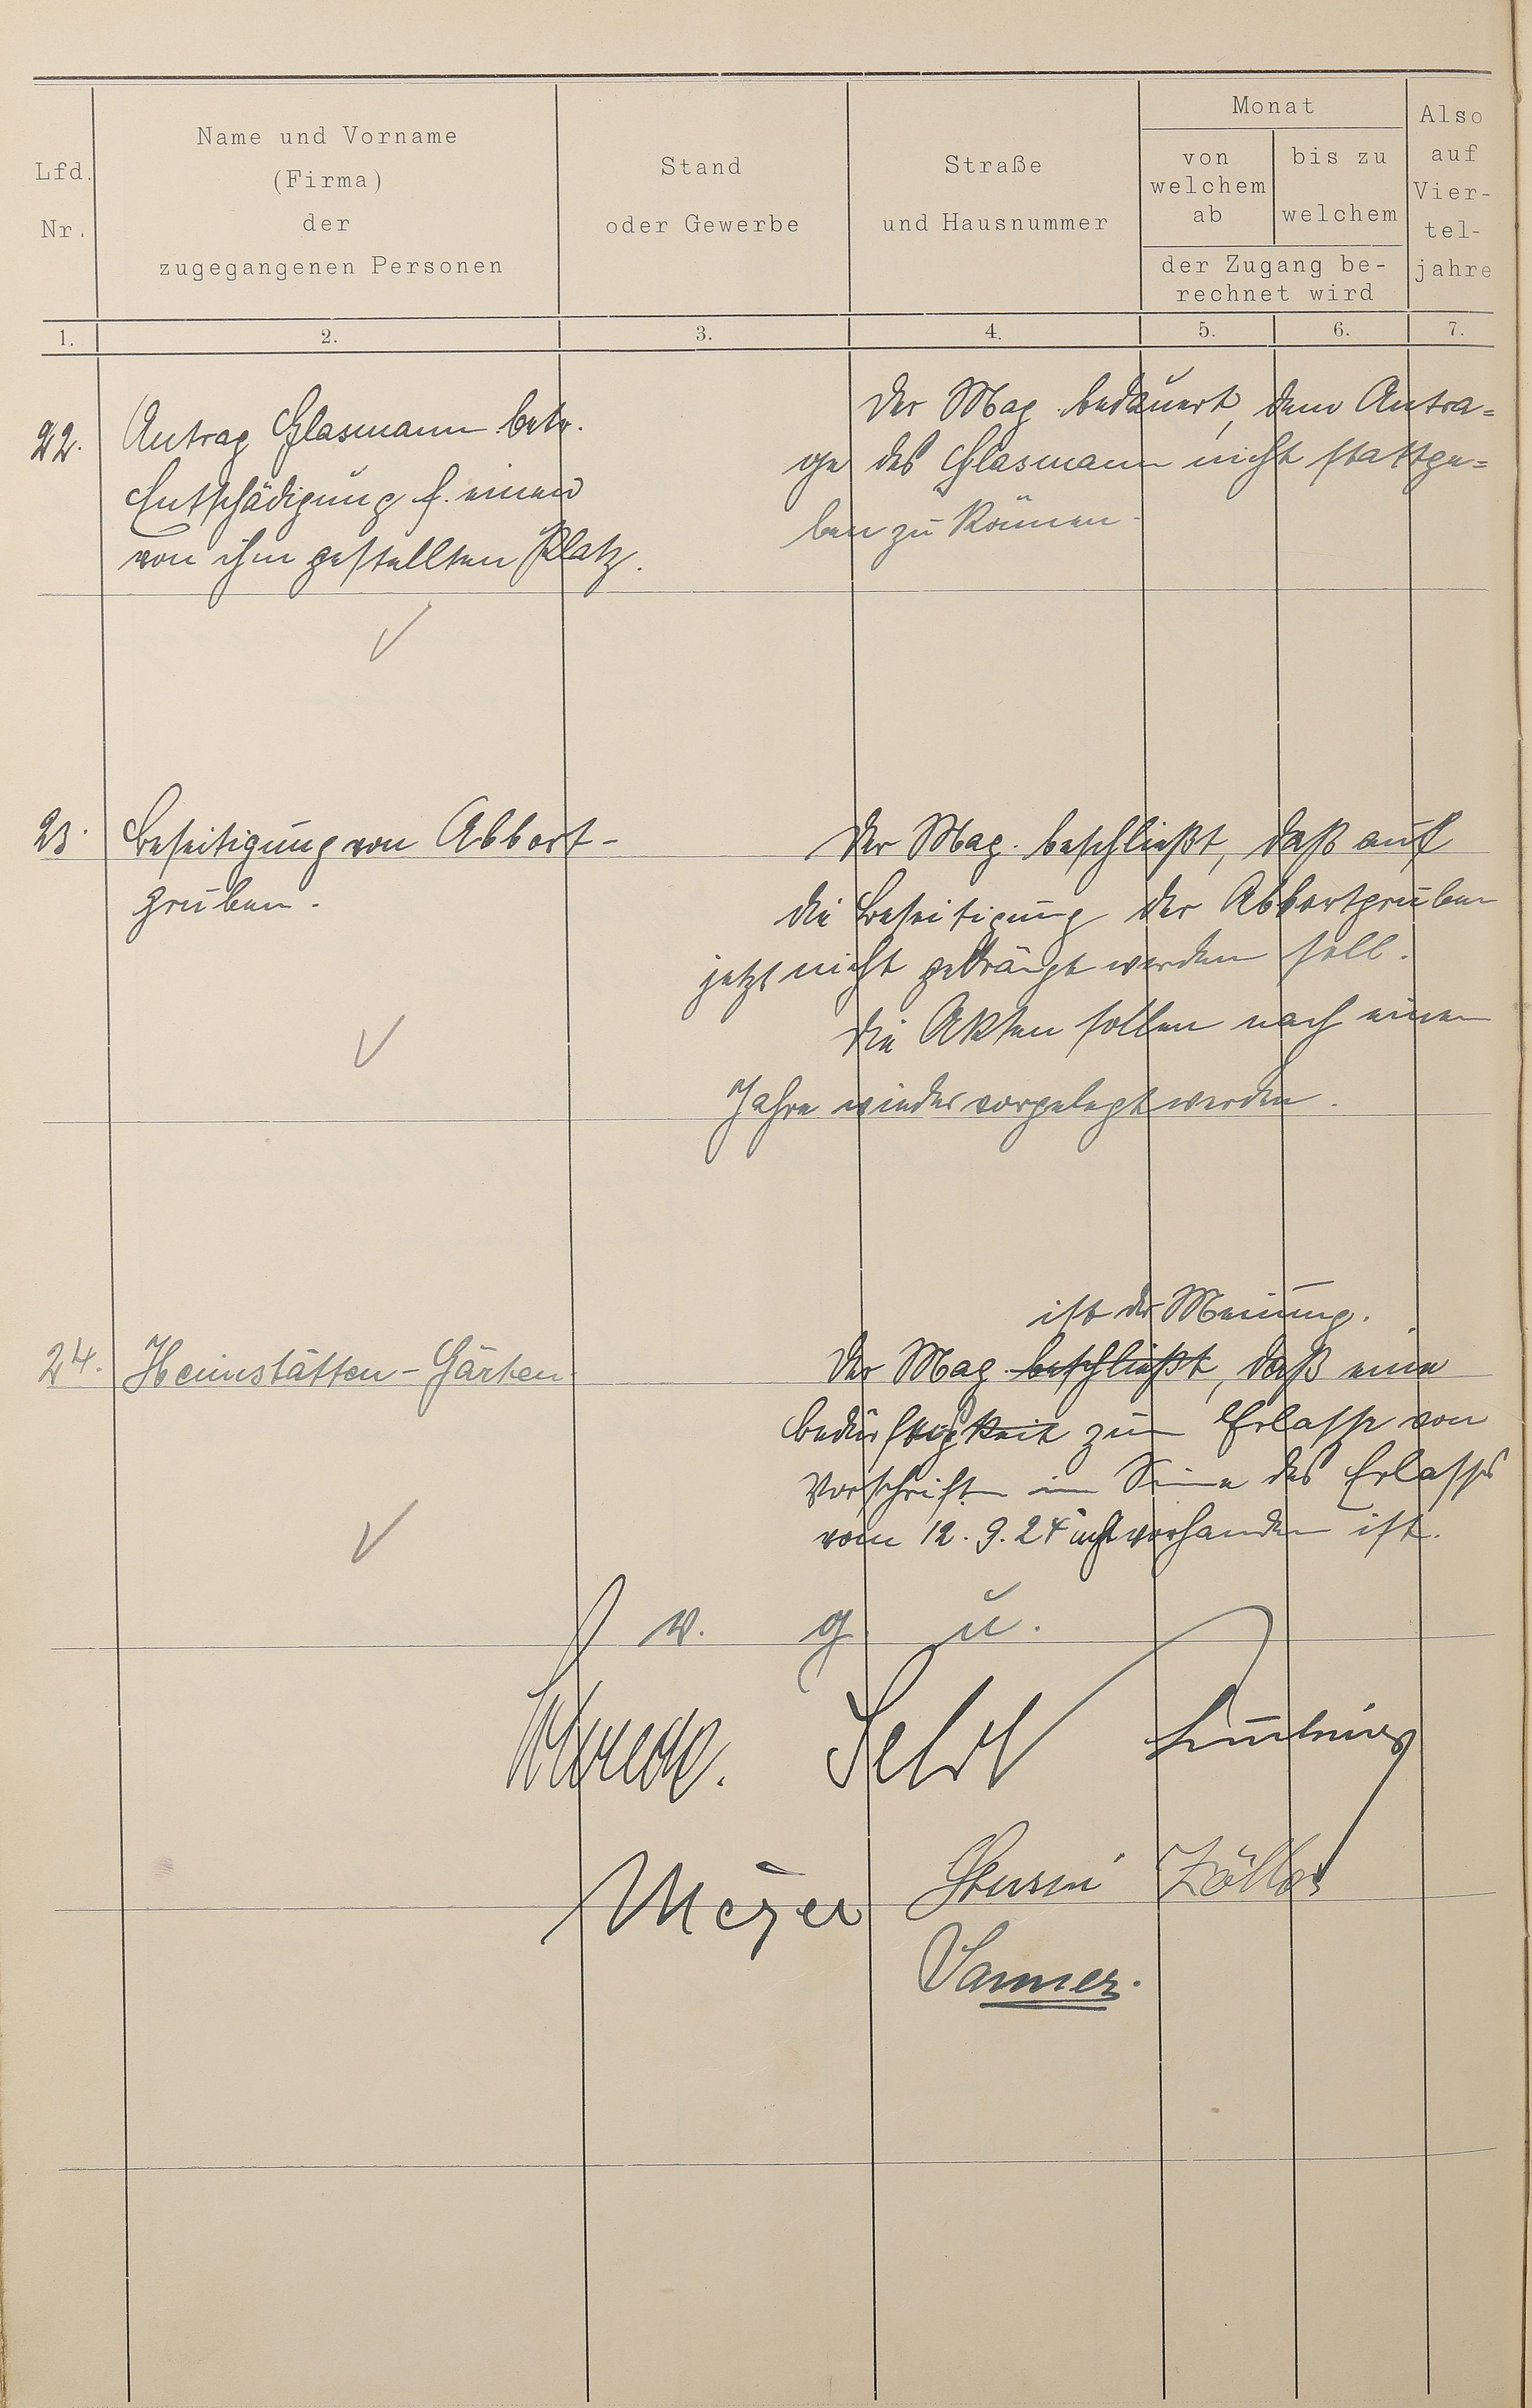 Lfd. Nr.
Name und Vorname
(Firma)
der
zugegangenen Personen
Stand
oder Gewerbe
Straße
und Hausnummer
Monat
von
welchem
ab
bis zu
welchem
der Zugang be-
rechnet wird
Also
auf
Vier-
tel-
jahre
1. 2. 3. 4. 5. 6. 7.
22. Antrag Glasmann betr.
Entschädigung f. einen
von ihm gestellten Platz.
Der Mag. bedauert, dem Antra=
ge des Glasmann nicht stattge=
ben zu können.
23. Beseitigung von Abbort-
gruben.
Der Mag. beschließt, daß auf
die Beseitigung der Abbortgruben
jetzt nicht gedrängt werden soll.
Die Akten sollen nach einem
Jahre wieder vorgelegt werden.
24. Heimstätten-Gärten.
ist der Meinung.
Der Mag. beschließt, daß eine
zum Erlasse von
Vorschriften im Sinne des Erlasses
vom 12.9.24 nicht vorhanden ist.
v. g. u.
Meyer
Zöller
Sanner.